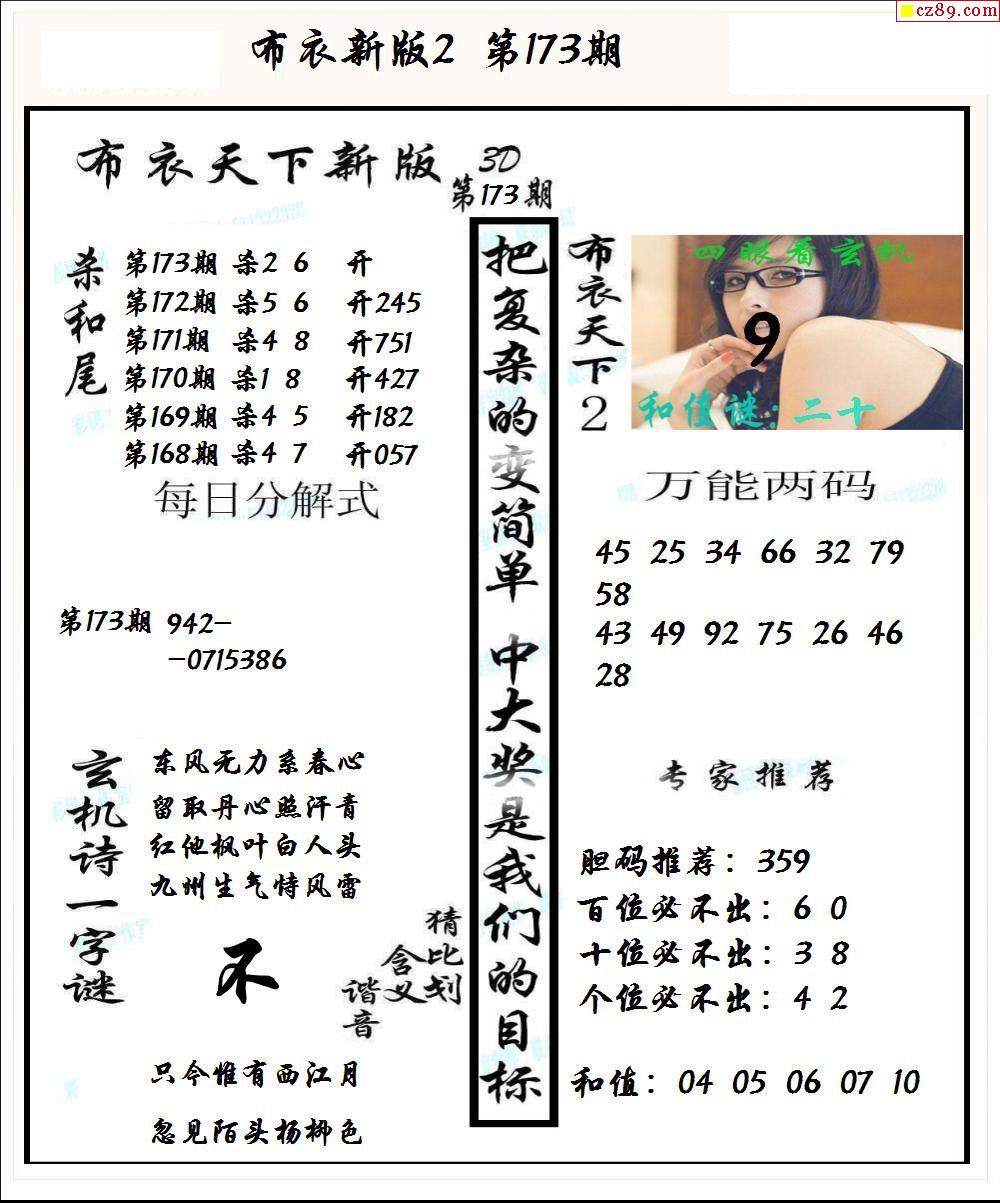 cz89.com
布衣新版2 第173期
布衣天下新版 3D
第173期
杀和尾
第173期 杀2 6 开
第172期 杀5 6 开245
第171期 杀4 8 开751
第170期 杀1 8 开427
第169期 杀4 5 开182
第168期 杀4 7 开057
每日分解式
第173期 942-
-0715386
玄机诗一字谜
东风无力系春心
留取丹心照汗青
红他枫叶白人头
九州生气恃风雷
不
猜比划
含义
谐音
只今惟有西江月
忽见陌头杨柳色
把复杂的变简单 中大奖是我们的目标
布衣天下2
四眼看玄机
9
和值谜:二十
万能两码
45 25 34 66 32 79
58
43 49 92 75 26 46
28
专家推荐
胆码推荐：359
百位必不出：6 0
十位必不出：3 8
个位必不出：4 2
和值：04 05 06 07 10